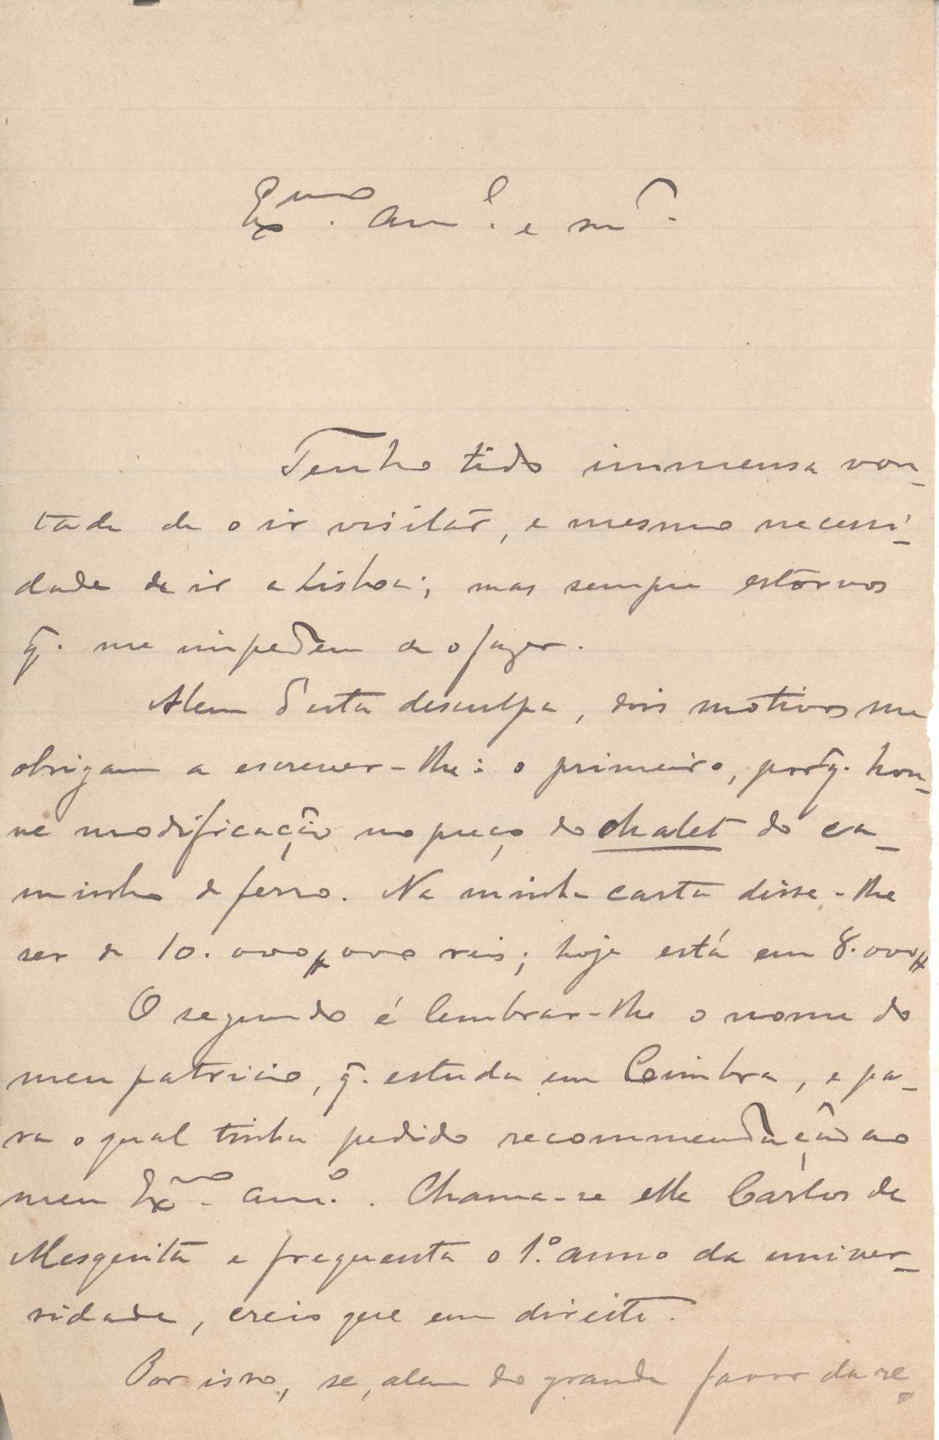 Exmo. Amo. e snr.
Tenho tido immensa von-
tade de o ir visitar, e mesmo necessi-
dade de ir a Lisboa; mas sempre estorvos
q. me impedem de o fazer.
Alem d'esta desculpa, dois motivos me
obrigam a escrever-lhe: o primeiro, porq. hou-
ve modificação no preço do chalet do ca-
minho de ferro. Na minha carta disse-lhe
ser de 10.000$000 reis; hoje está em 8.000$
O segundo é lembrar-lhe o nome do
meu patricio, q. estuda em Coimbra, e pa-
ra o qual tinha pedido recommendação ao
meu Exmo. amo. Chama-se elle Carlos de
Mesquita e frequenta o 1.º anno da univer-
sidade, creio que em direito.
Por isso, se, alem do grande favor da re-